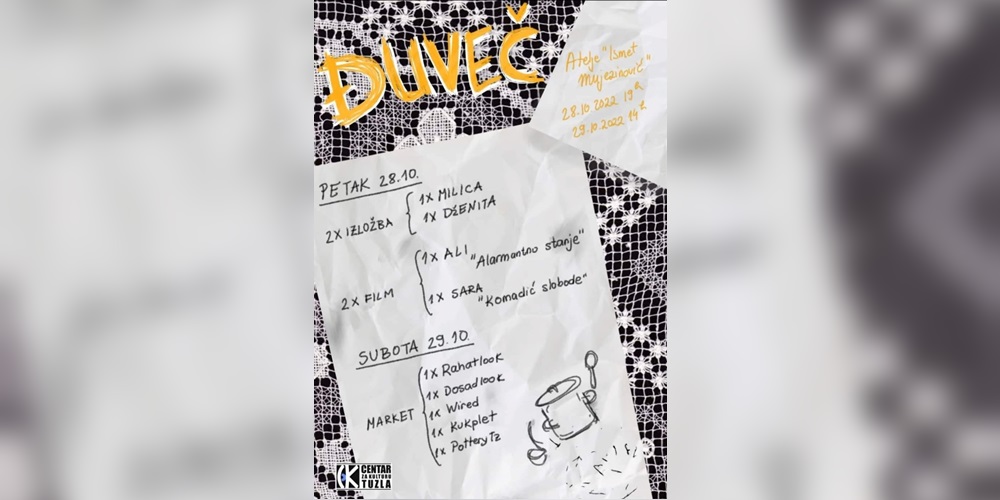 ĐUVEČ
Atelje "Ismet
Mujezinović"
28.10.2022 19h
29.10.2022 14h
PETAK 28.10.
2X IZLOŽBA
1X MILICA
1X DŽENITA
2X FILM
1X ALI "Alarmantno stanje"
1X SARA
"Komadić slobode"
SUBOTA 29.10.
MARKET
1X Rahatlook
1X Dosadlook
1X Wired
1X Kukplet
1X PotteryTz
CENTAR
ZA KULTURU
TUZLA